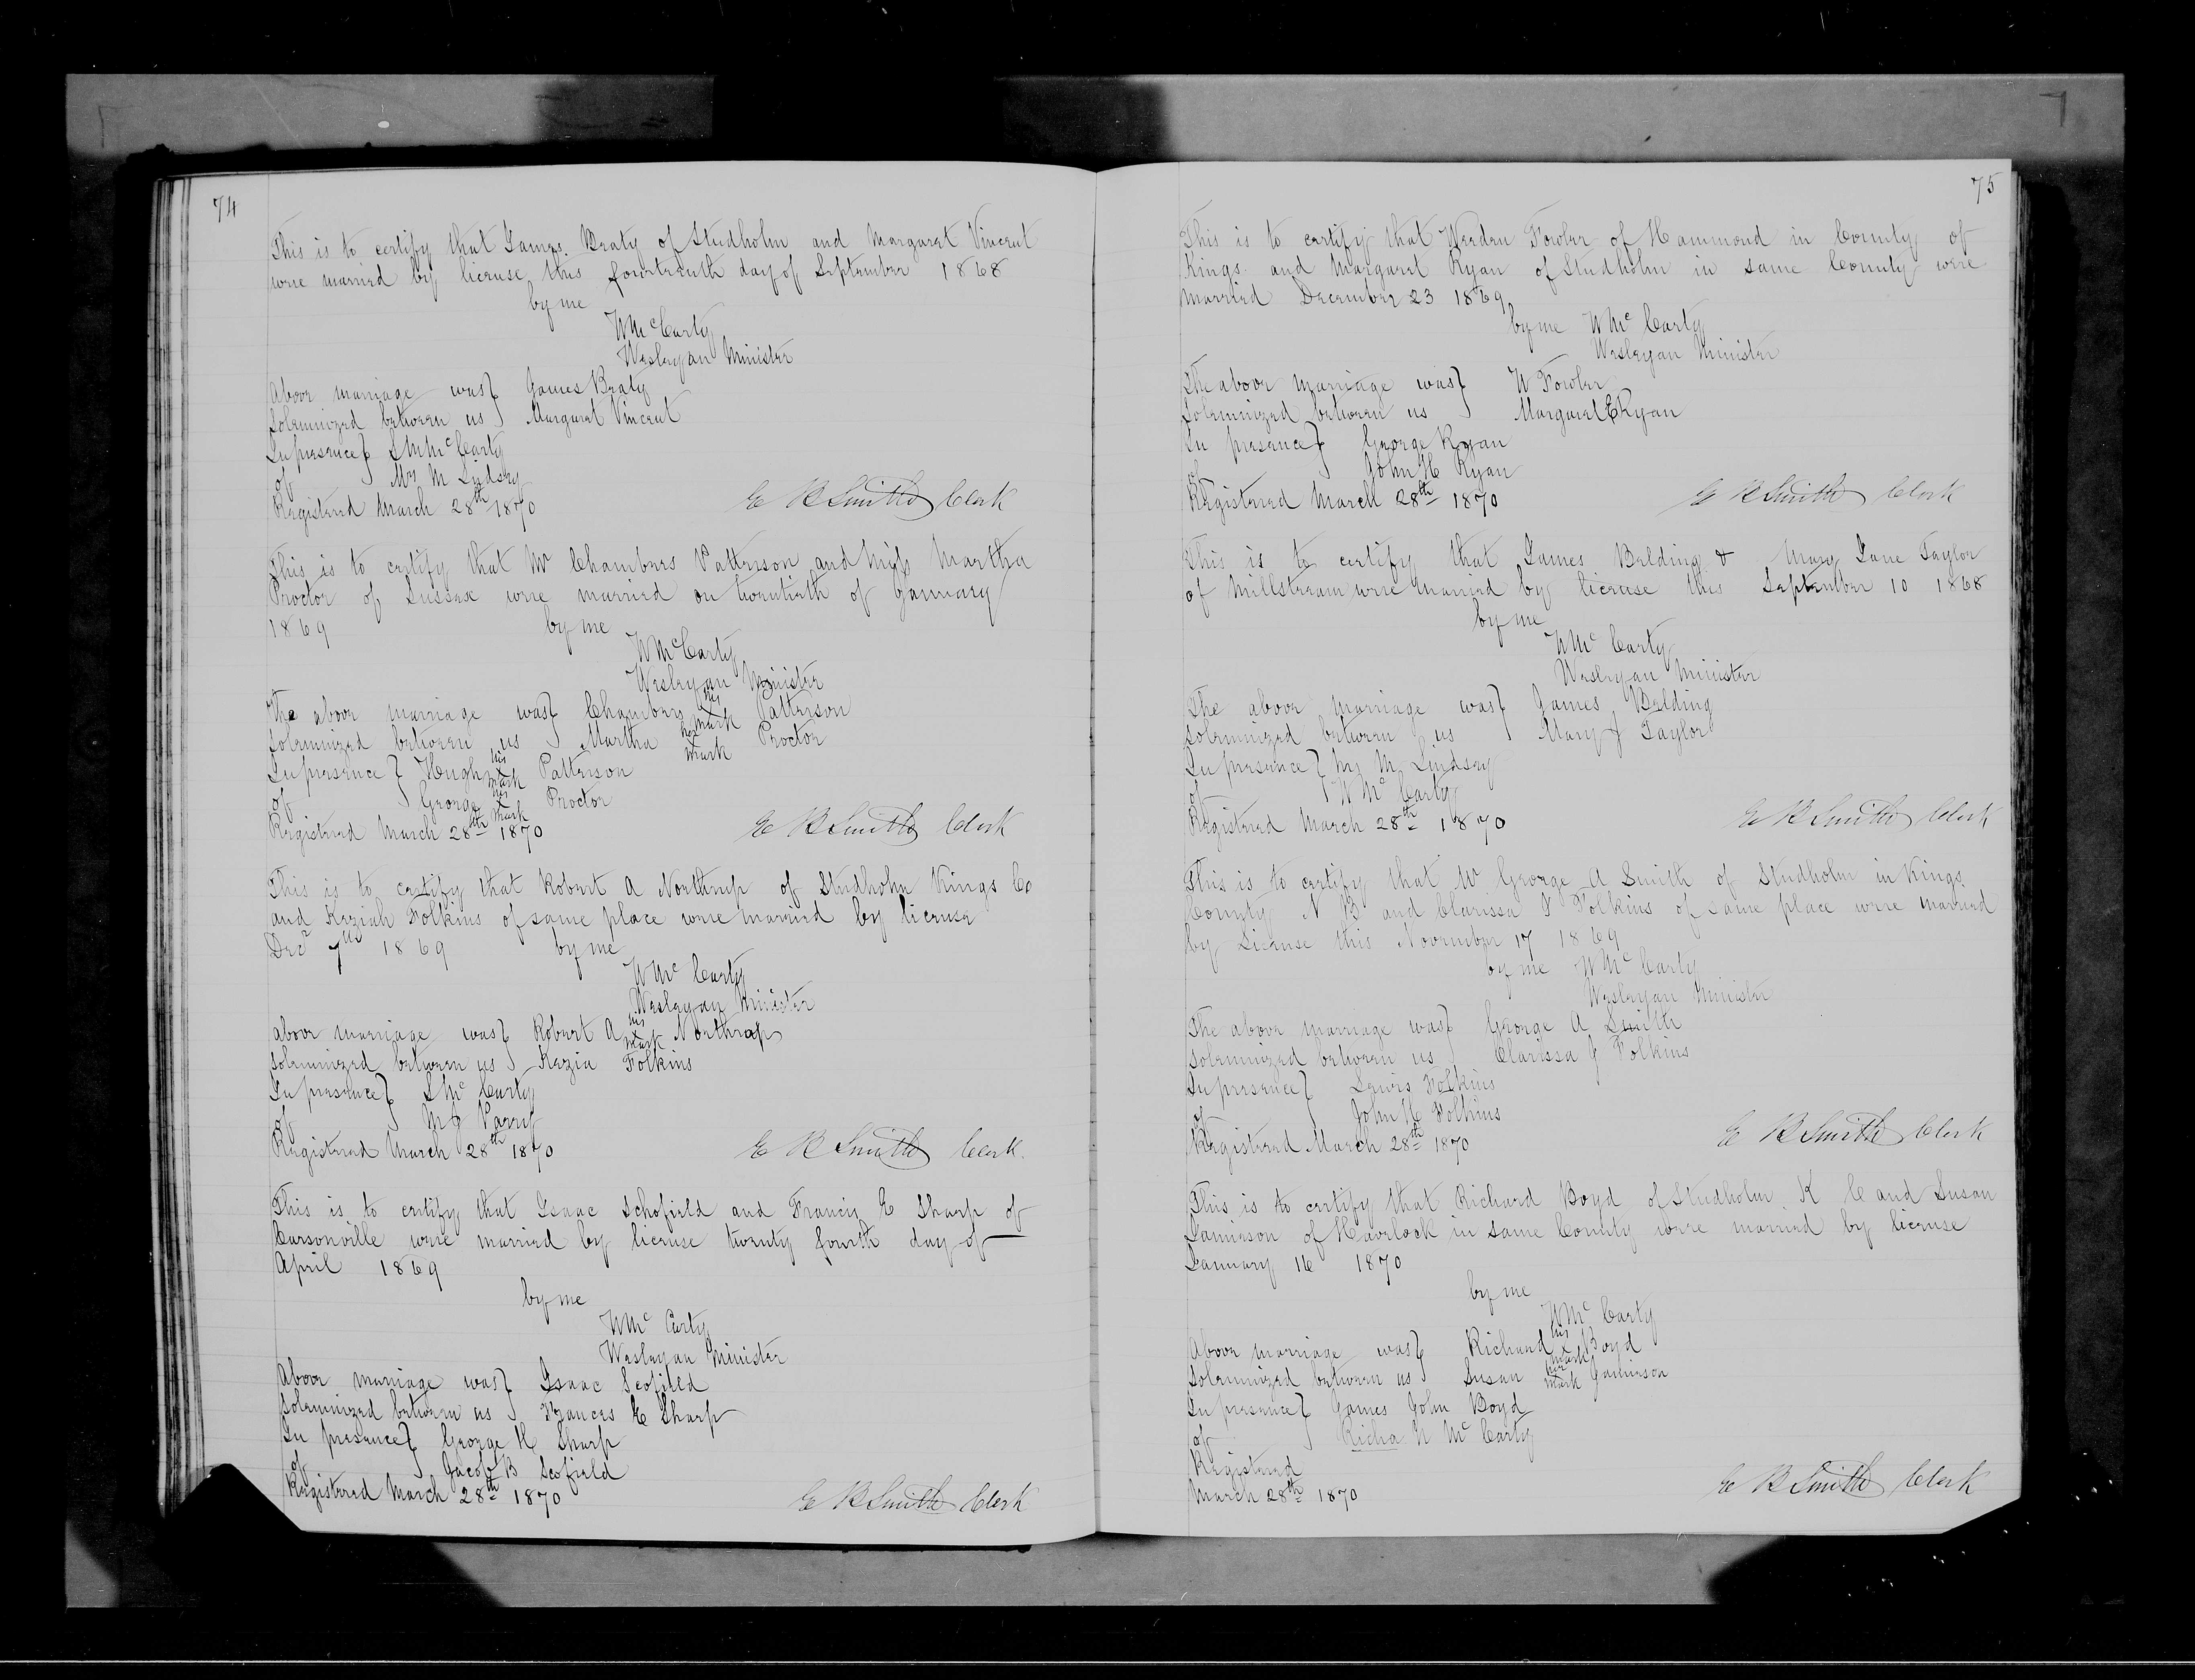 74
This is to certify that James Beaty of Studholm and Margaret Vincent
were married by license this fourteenth day of September 1868
by me
W McCarty
Wesleyan Minister
Above marriage was } James Beaty
Solemnized between us } Margaret Vincent
In presence } S M McCarty
of } Mrs M Lindsey
Registered March 28th 1870 E B Smith Clerk
This is to certify that Mr Chambers Patterson and Miss Martha
Proctor of Sussex were married on twentieth of January
1869 by me
W McCarty
Wesleyan Minister
The above marriage was } Chambers his x mark Patterson
solemnized between us } Martha her x mark Proctor
In presence } Hugh his x mark Patterson
of } George his x mark Proctor
Registered March 28th 1870 E B Smith Clerk
This is to certify that Robert A Northrup of Studholm Kings Co
and Keziah Folkins of same place were married by license
Decr 7th 1869 by me
W Mc Carty
Wesleyan Minister
above marriage was } Robert A his x mark Northrup
solemnized between us } Kezia Folkins
In presence } S Mc Carty
of } M J Parry
Registered March 28th 1870 E B Smith Clerk.
This is to certify that Isaac Schofield and Francis E Sharp of
Carsonville were married by license twenty fourth day of
April 1869
by me
W Mc Carty
Wesleyan Minister
Above marriage was } Isaac Scofield
Solemnized between us } Frances E Sharp
In presence } George H Sharp
of } Jacob B Scofield
Registered March 28th 1870 E B Smith Clerk
75
This is to certify that Weeden Fowler of Hammond in County of
Kings and Margaret Ryan of Studholm in same County were
married December 23 1869
by me W Mc Carty
Wesleyan Minister
The above marriage was } W Fowler
Solemnized between us } Margaret E Ryan
In presence } George Ryan
of } John H Ryan
Registered March 28th 1870 E B Smith Clerk
This is to certify that James Belding & Mary Jane Taylor
of Millstream were married by license this September 10 1868
by me
W Mc Carty
Wesleyan Minister
The above marriage was } James Belding
solemnized between us } Mary J Taylor
In presence } Mrs M Lindsey
of } W Mc Carty
Registered March 28th 1870 E B Smith Clerk
This is to certify that Mr George A Smith of Studholm in Kings
County N B and Clarissa J Folkins of same place were married
by License this November 17 1869
by me W Mc Carty
Wesleyan Minister
The above marriage was } George A Smith
solemnized between us } Clarissa J Folkins
In presence } Lewis Folkins
of } John H Folkins
Registered March 28th 1870 E B Smith Clerk
This is to certify that Richard Boyd of Studholm K C and Susan
Jamieson of Havelock in same County were married by license
January 16 1870
by me
W Mc Carty
Above marriage was } Richard his x mark Boyd
Solemnized between us } Susan her mark Jamieson
In presence } James John Boyd
of } Richa N Mc Carty
Registered
March 28th 1870 E B Smith Clerk